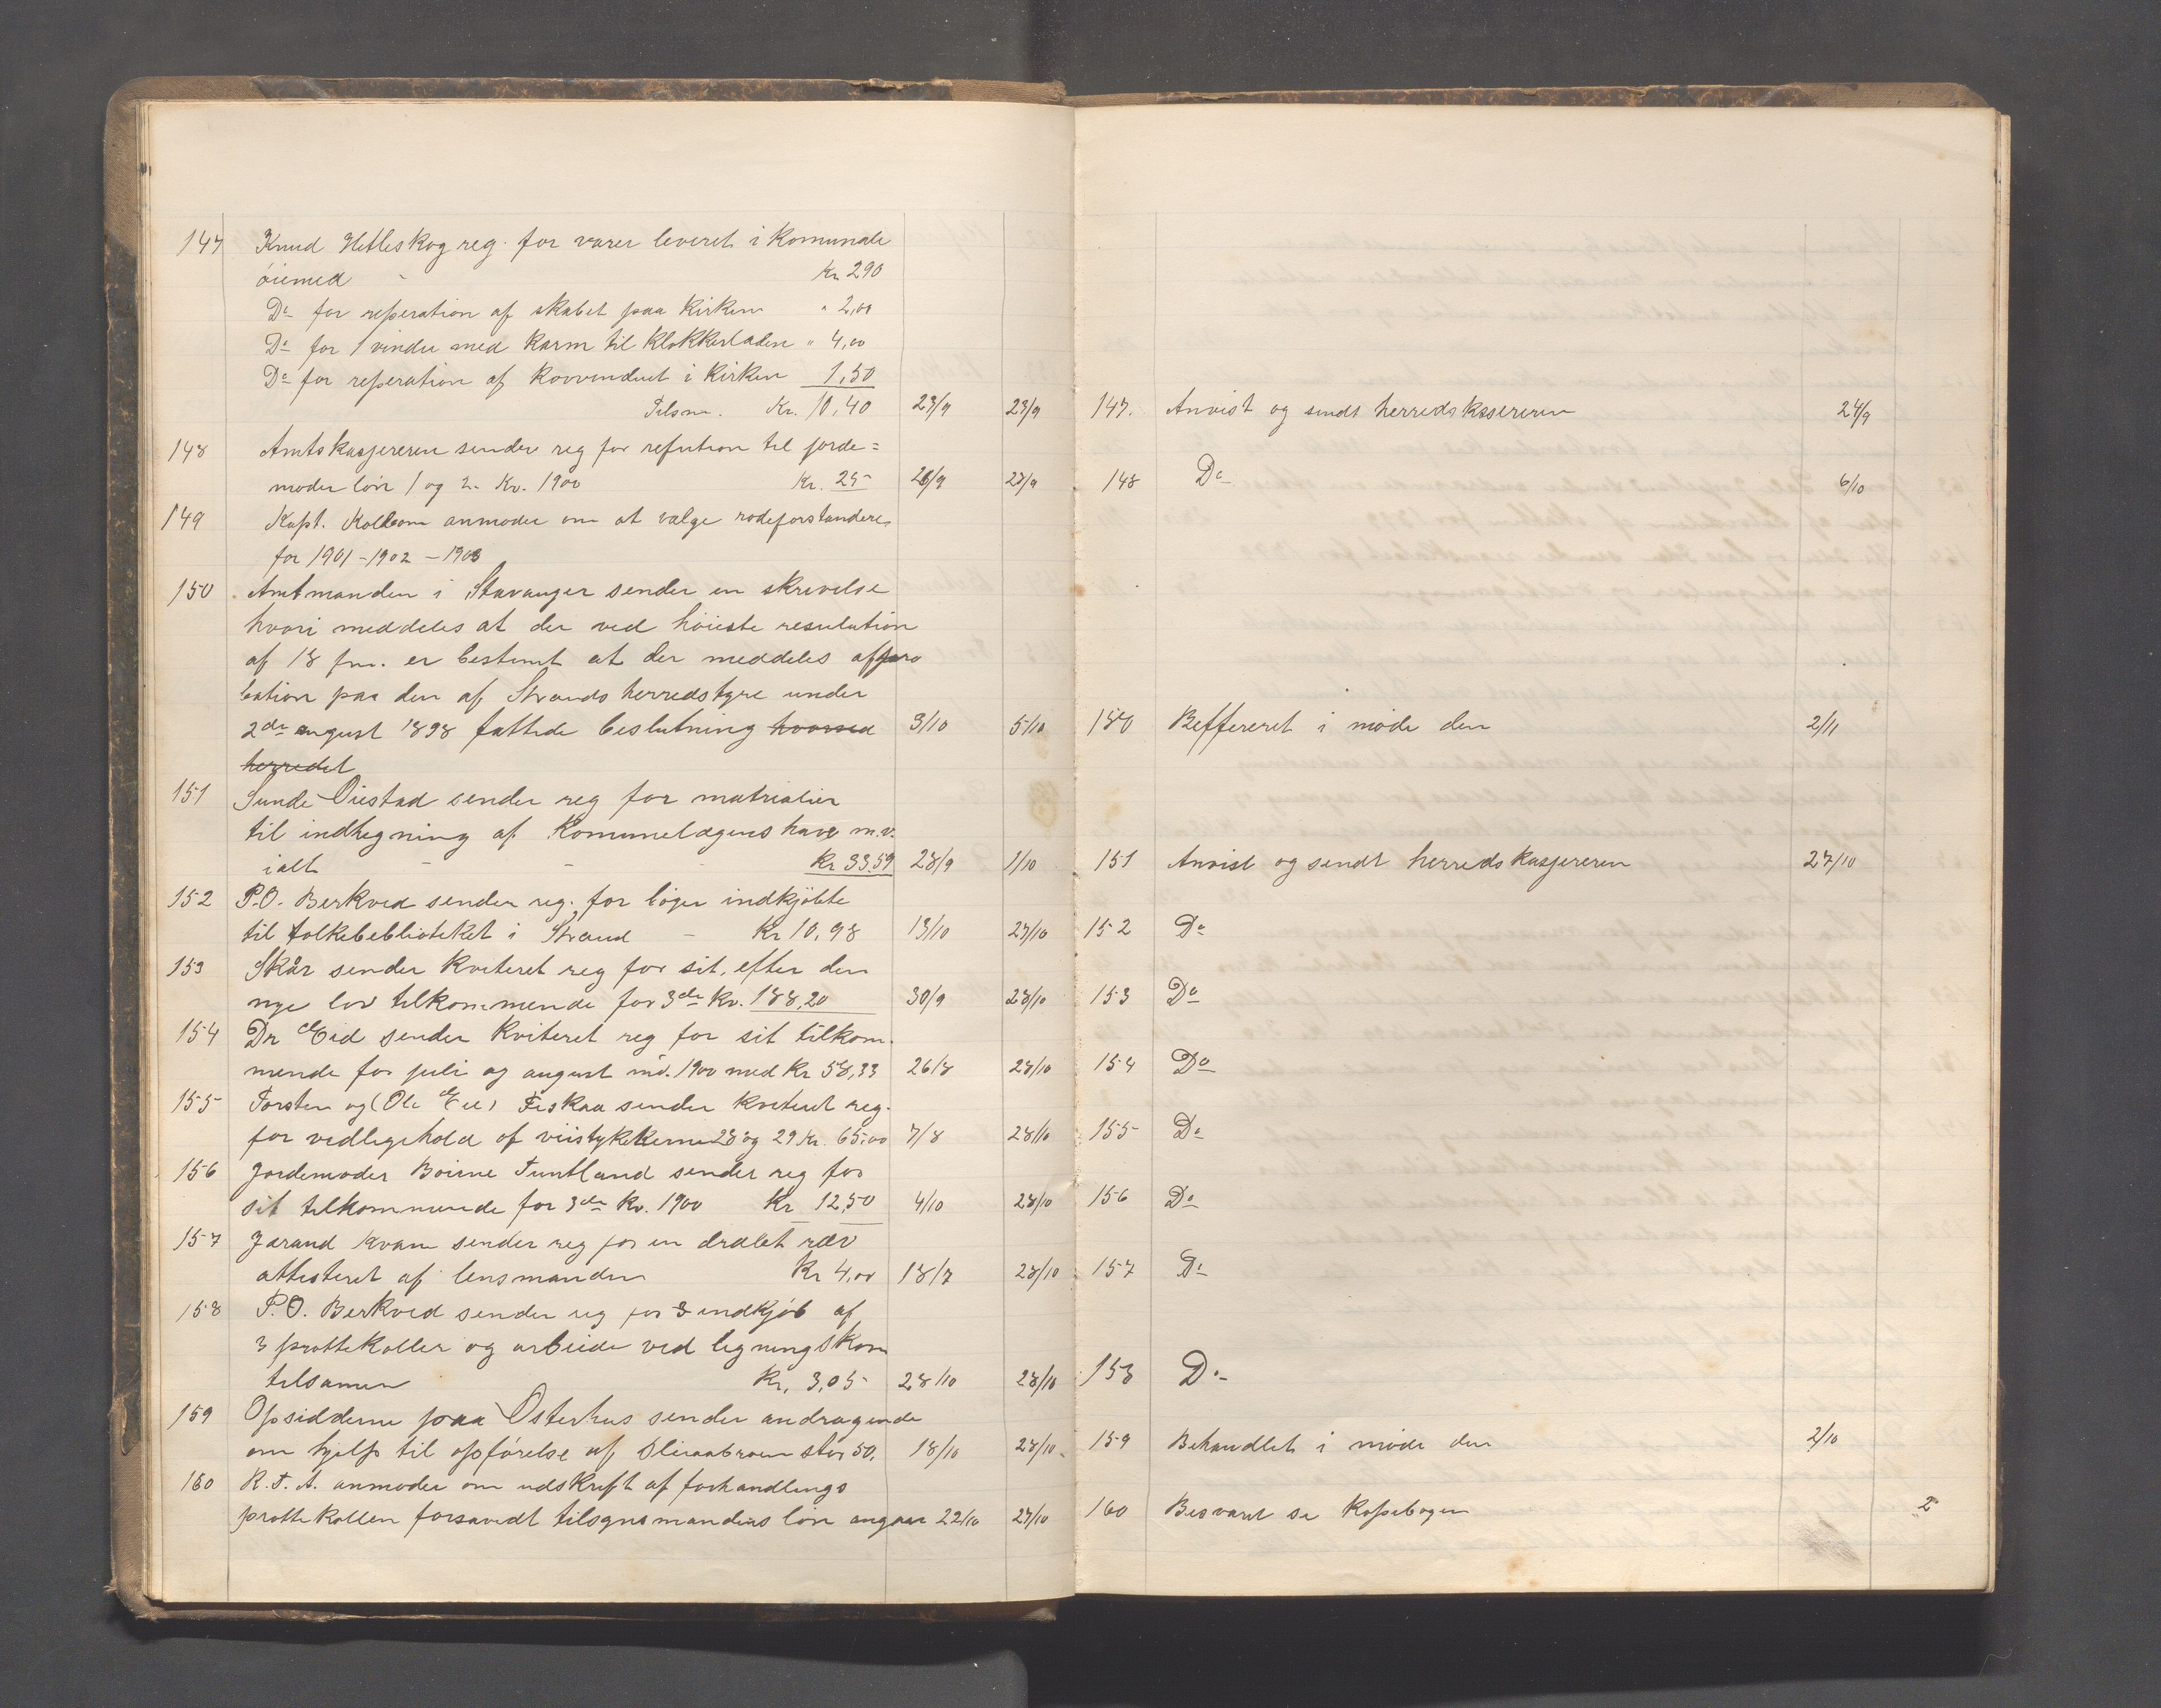 147 Knud Hetleskog reg. for varer leveret i Komunale
øiemed - Kr 290
Do for reperation af skabet paa Kirken " 2,00
Do for 1 vindu med Karm til Klokkerladen " 4,00
Do for reperation af Korvinduet i Kirken 1,50
Tilsm. Kr. 10,40 23/9 23/9
148 Amtskasjereren sender reg for refution til jorde=
moder løn 1 og 2. Kv. 1900 Kr. 25- 26/9 27/9
149 Kapt. anmoder om at vælge rodeforstandere
for 1901-1902-1903
150 Amtmanden i Stavanger sender en skrivelse
hvori meddeles at der ved høieste resulution
af 18 fm. er bestemt at der meddeles appro
bation paa den af Strands herredstyre under
2de august 1898 fattede beslutning hvorved 3/10 5/10
herredet
151 Sunde Øiestad sender reg for matrialier
til indhegning af Komunelægens have m.v.
ialt - - - Kr 33.59 28/9 1/10
152 P.O. Berkved sender reg. for bøger indkjøbte
til folkebeblioteket i Strand - Kr 10,98 13/10 27/10
153 Skår sender kviteret reg for sit, efter den
nye lov tilkommende for 3de Kv. 188,20 30/9 28/10
154 Dr Eid sender Kviteret reg for sit tilkom-
mende for juli og august md. 1900 med Kr 58,33 26/8 28/10
155 Torsten og (Ole Eie) Fiskaa sender kviteret reg.
for vedligehold af veistykkerne 28 og 29 Kr. 65,00 7/8 28/10
156 Jordemoder Boirne Tuntland sender reg for
sit tilkommende for 3de Kv. 1900 Kr 12,50 4/10 28/10
157 Jarand Kvam sender reg for en dræbt ræv
attesteret af lensmanden Kr 4,00 18/7 28/10
158 P.O. Berkved sender reg for 3 indkjøb af
3 prottekoller og arbeide ved ligningskom
tilsamen Kr. 3,05- 28/10 28/10
159 Opsidderne paa Østerhus sender andragende
om hjelp til opførelse af stor 50. 18/10 28/10
160 R.T.A. anmoder om udskrift af forhandlings
prottekollen forsavidt tilsynsmandens løn angaar 22/10 27/10
147. Anvist og sendt herredskassereren 24/9
148 Do 6/10
150 Reffereret i møde den 2/11
151 Anvist og sendt herredskasjereren 27/10
152 Do
153 Do
154 Do
155 Do
156 Do
157 Do
158 Do
159 Behandlet i møde den 2/10
160 Besvaret se Kopibogen 2